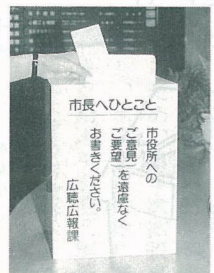 市長へひとこと
市役所への
ご意見
ご要望
を遠慮なく
お書きください。
広聴広報課